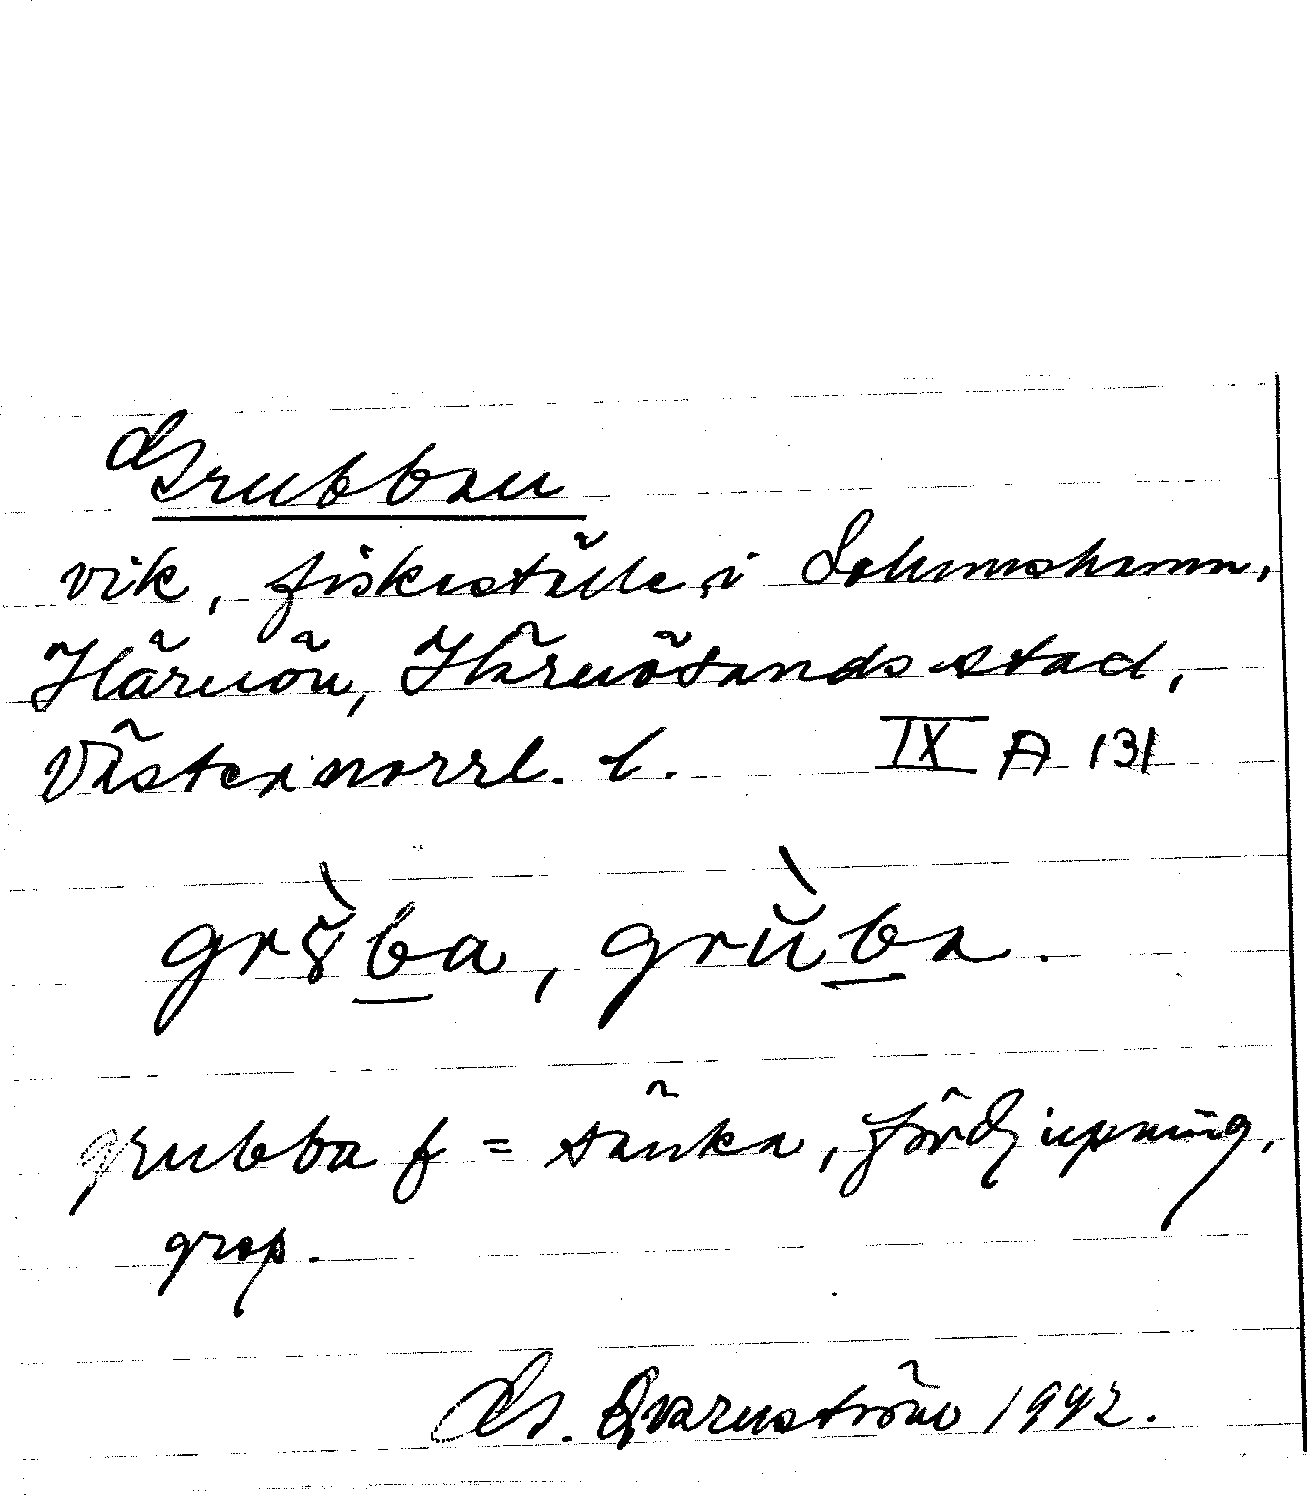 Grubban
vik, fiskeställe i Solumshamn,
Härnön, Härnösands stad,
Västernorrl. l. IX A 131
gr8̀ba, grùba.
grubba f = sänka, fördjupning,
grop.
G. Qvarnström 1942.